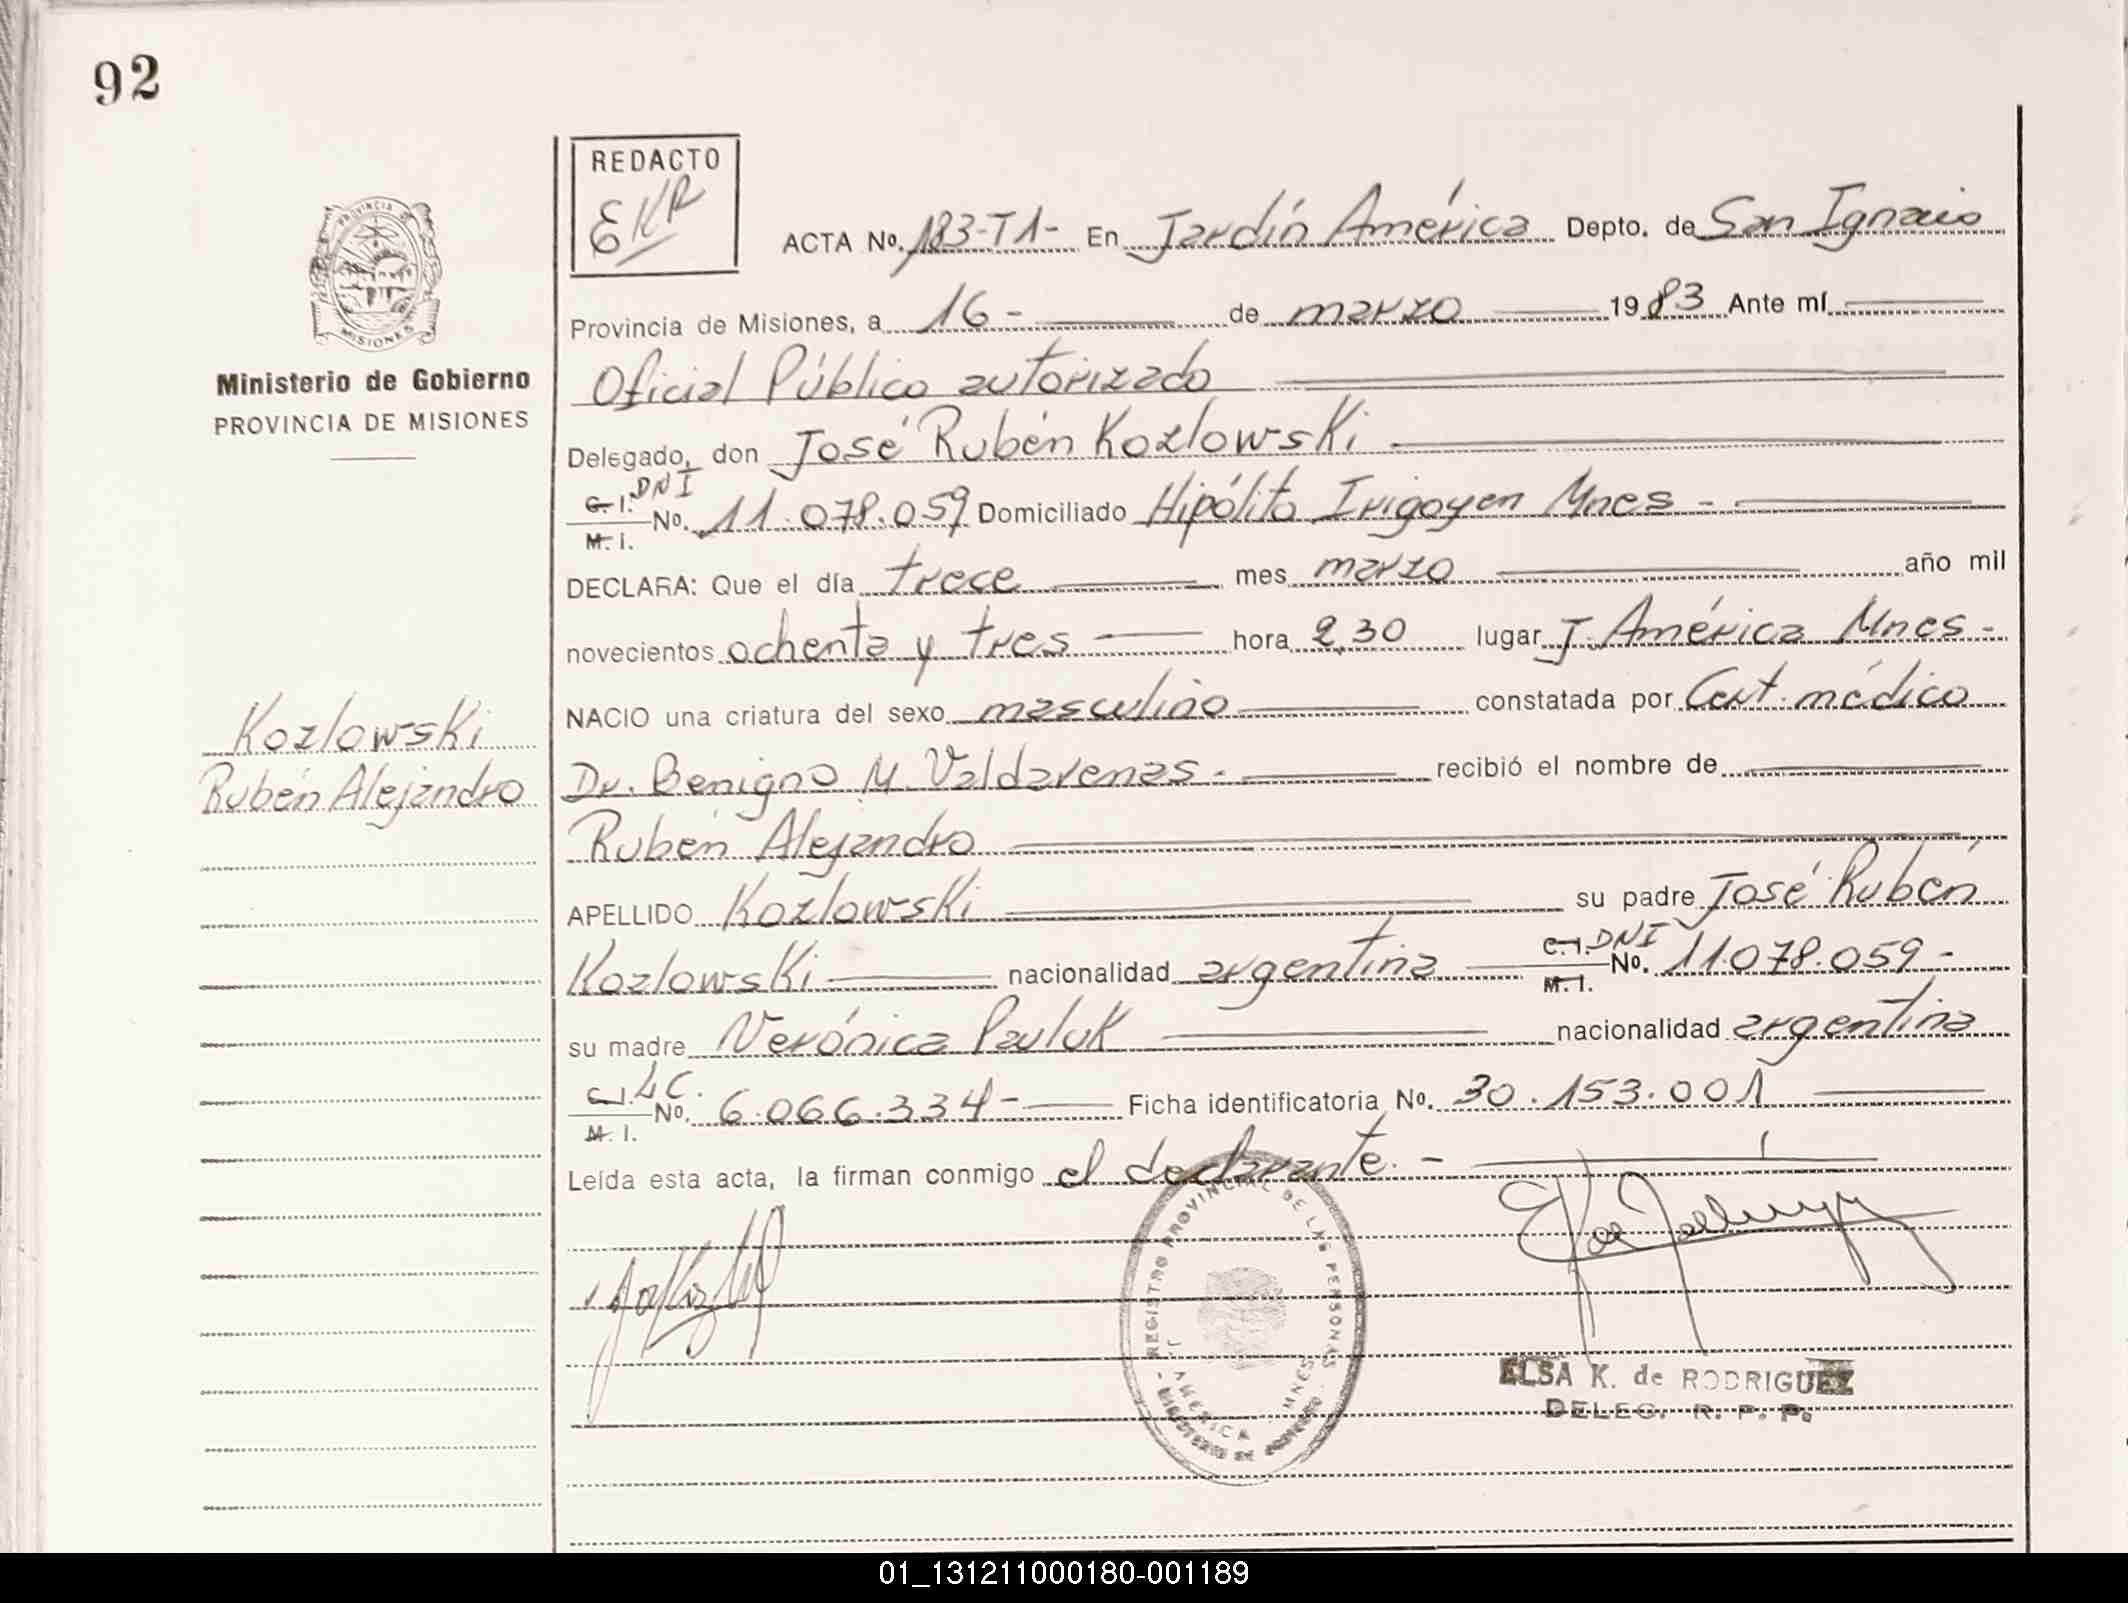 92
REDACTO
EKR
PROVINCIA DE
MISIONES
Ministerio de Gobierno
PROVINCIA DE MISIONES
Kozlowski
Rubén Alejandro
ACTA No. 183-T1- En Jardín América Depto. de San Ignacio
Provincia de Misiones, a 16- de marzo 1983 Ante mí
Oficial Público autorizado
Delegado, don José Rubén Kozlowski
C. I. DNI
M. I. No. 11.078.059 Domiciliado Hipólito Irigoyen Mnes -
DECLARA: Que el día trece mes marzo año mil
novecientos ochenta y tres hora 2,30 lugar J. América Mnes -
NACIO una criatura del sexo masculino constatada por Cert. médico
Dr. Benigno M. Valdarenas - recibió el nombre de
Rubén Alejandro
APELLIDO Kozlowski su padre José Rubén
Kozlowski nacionalidad argentina C. I. DNI M. I. No. 11.078.059 -
su madre Verónica Pauluk nacionalidad argentina
C. I. LC. M. I. No. 6.066.334 - Ficha identificatoria No. 30.153.001
Leída esta acta, la firman conmigo el declarante. -
REGISTRO PROVINCIAL DE LAS PERSONAS
J. AMERICA MNES
ELSA K. de RODRIGUEZ
DELEG. R. P. P.
01_131211000180-001189